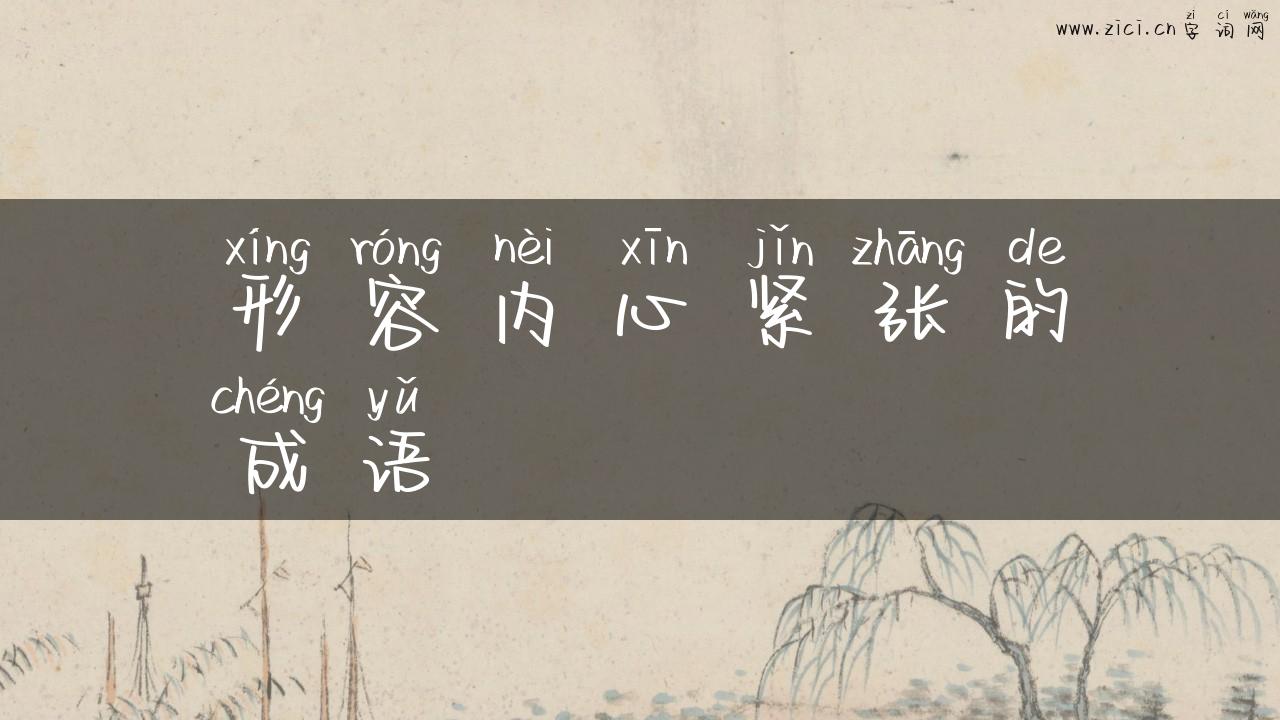 zì cí wǎng
www.zici.cn字词网
xíng róng nèi xīn jǐn zhāng de
形容内心紧张的
chéng yǔ
成语